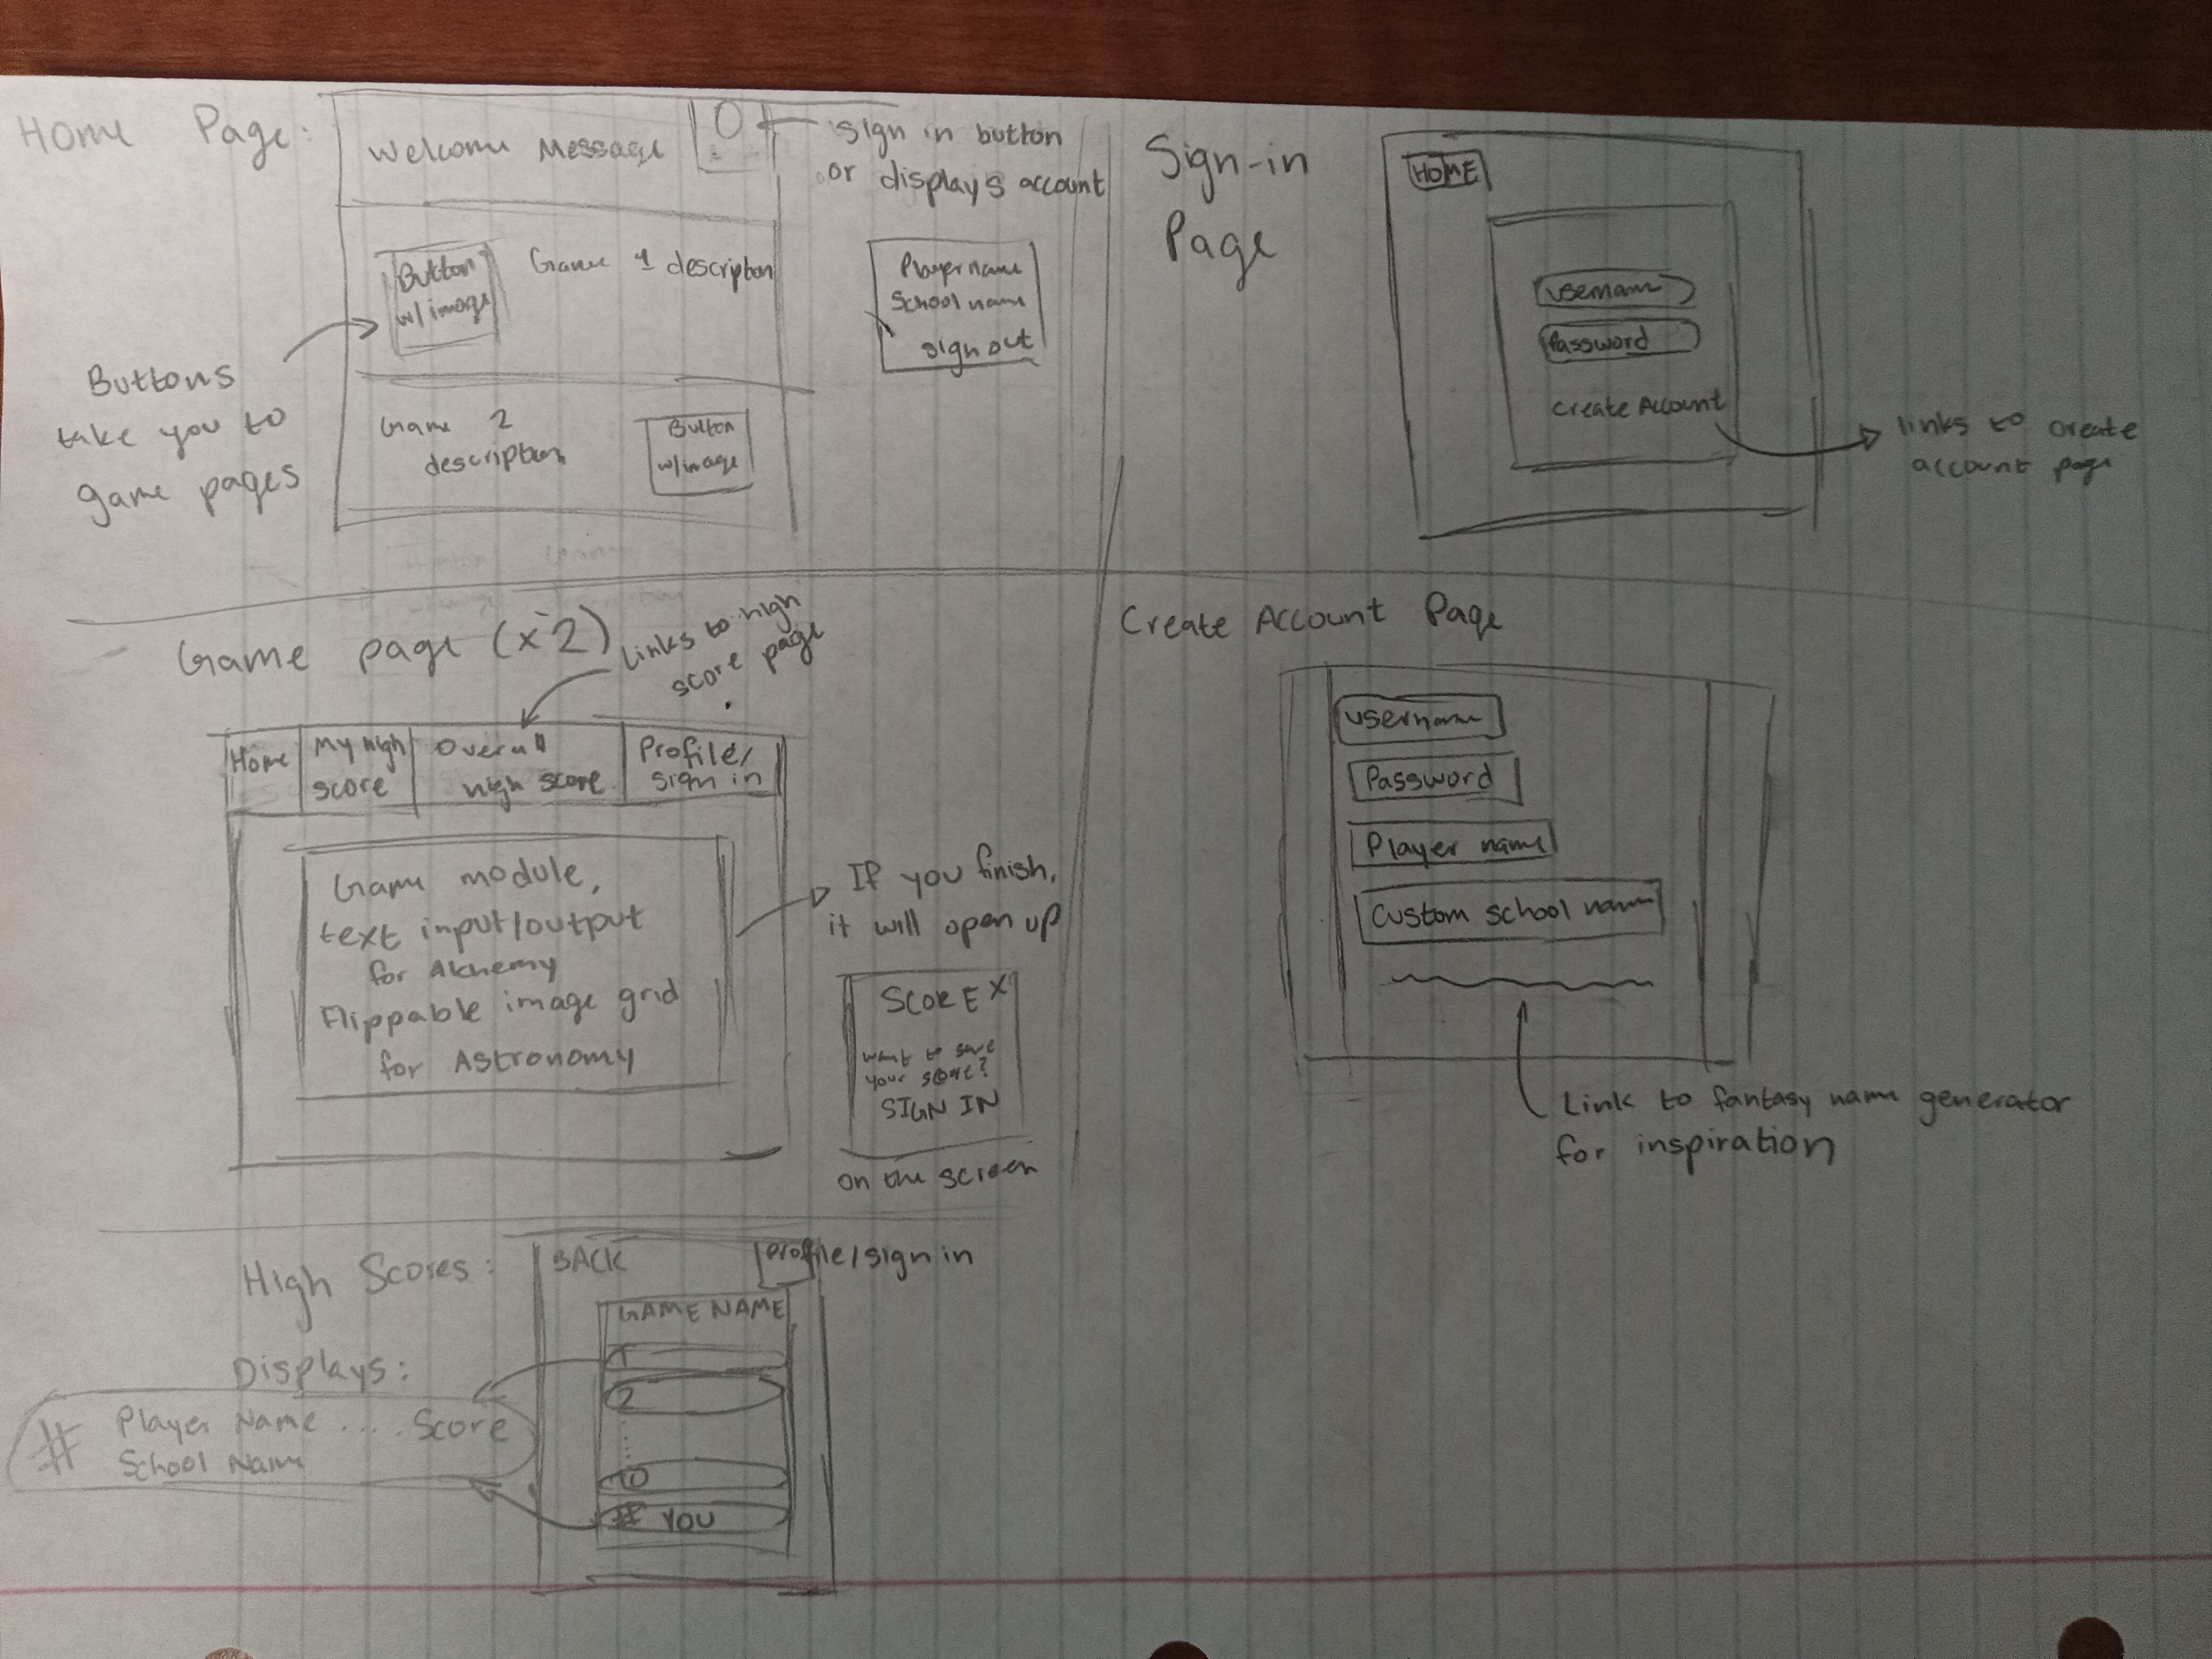 Home Page:
Welcome Message
sign in button
or displays account
Button
w/image
Game 1 description
Player name
School name
sign out
Buttons
take you to
game pages
Game 2
description
Button
w/image
Sign-in
Page
HOME
username
Password
Create Account
links to create
account page
Game page (x2)
links to high
score page
Home
My high
score
Overall
high score
Profile/
sign in
Game module,
text input/output
for Alchemy
Flippable image grid
for Astronomy
If you finish,
it will open up
SCORE X
want to save
your score?
SIGN IN
on the screen
Create Account Page
username
Password
Player name
Custom school name
Link to fantasy name generator
for inspiration
High Scores:
BACK
profile/sign in
GAME NAME
1
2
10
# YOU
Displays:
# Player Name .... Score
School Name